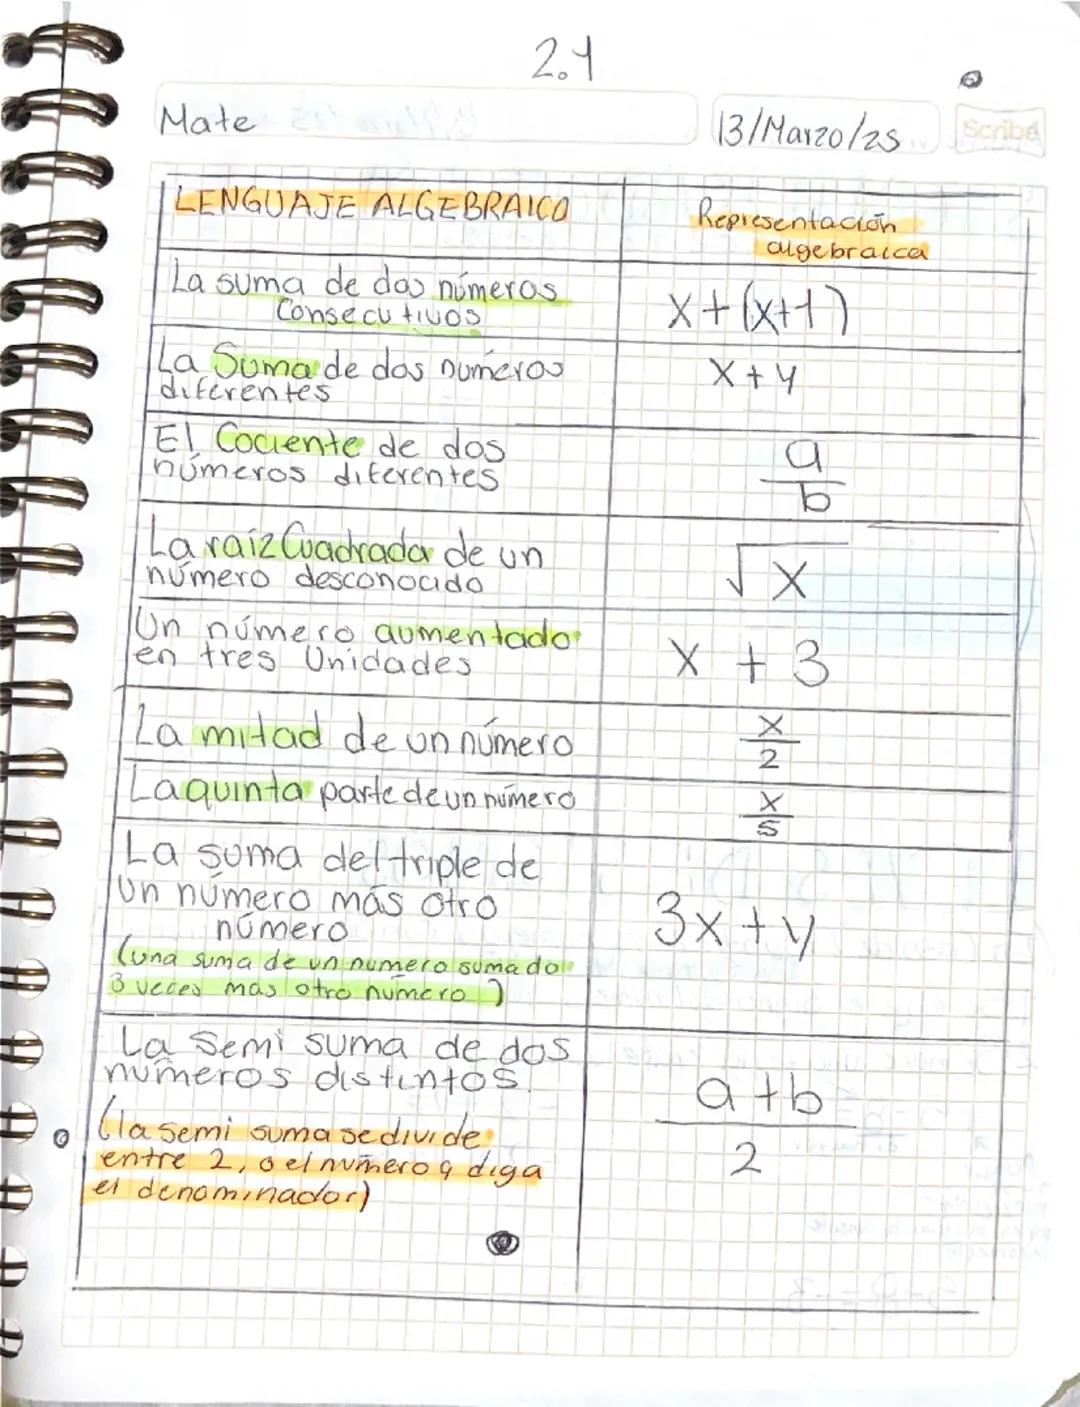 2.1
Mate
13/Marzo/25
Scribe
LENGUAJE ALGEBRAICO
Representación
algebraica
La suma de dos números
Consecutivos
x+(x+1)
La Suma de dos números
diferentes
x+y
El Cociente de dos
números diferentes
a
b
La raíz Cuadrada de un
número desconocido
√x
Un número aumentado
en tres Unidades
x + 3
La mitad de un número
x
2
La quinta parte de un número
x
5
La suma del triple de
un número más otro
número
(una suma de un numero sumado
3 veces más otro número)
3x+y
La Semi suma de dos
números distintos.
(la semi suma se divide
entre 2, o el número q diga
el denominador)
a+b
2